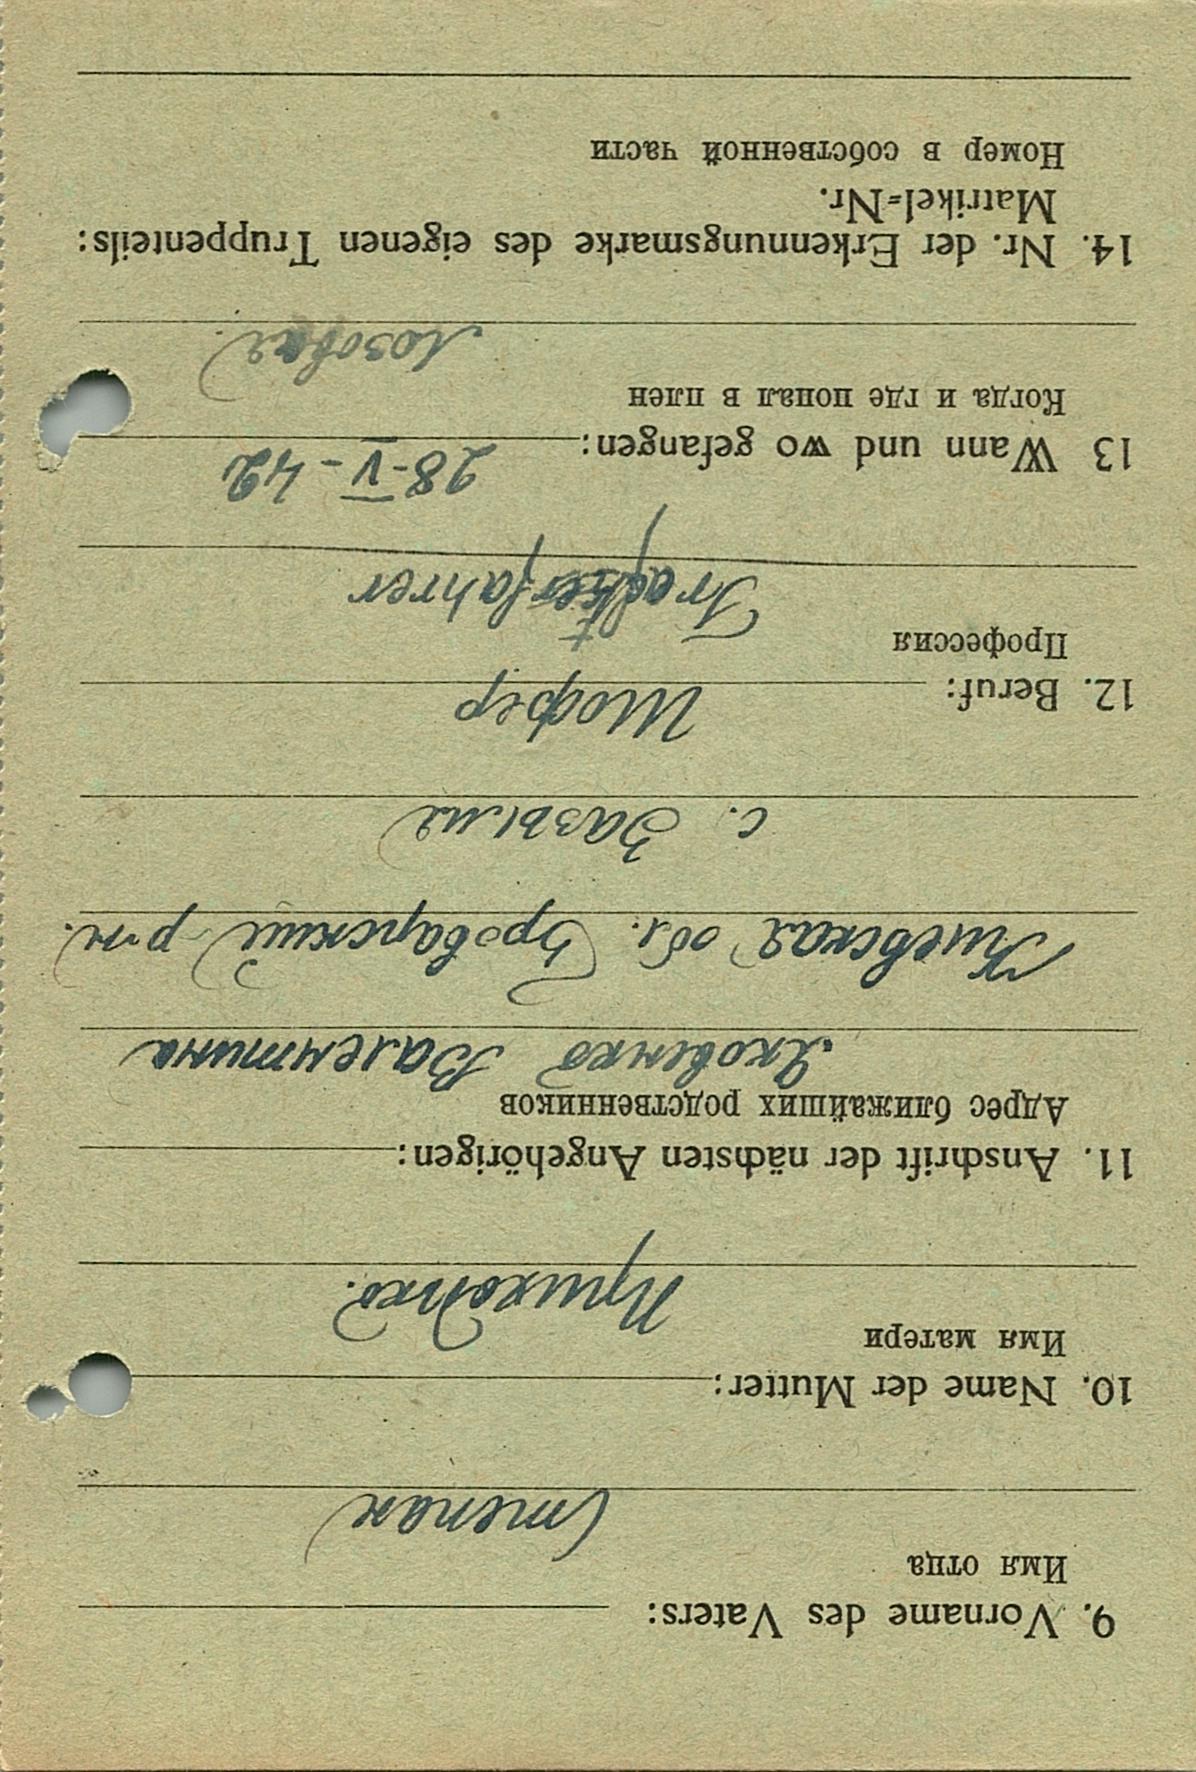 9. Vorname des Vaters:
Имя отца
Степан
10. Name der Mutter:
Имя матери
Приходько.
11. Anschrift der nächsten Angehörigen:
Адрес ближайших родственников
Яковенко Валентина
Киевская обл. Броварский р-н.
с. Зазымя
12. Beruf:
Шофер
Профессия
Trakterfahrer
13 Wann und wo gefangen:
28-V-42
Когда и где попал в плен
Лозовая.
14. Nr. der Erkennungsmarke des eigenen Truppenteils:
Matrikel=Nr.
Номер в собственной части